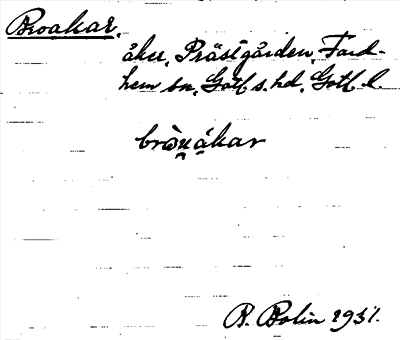 Broakar,
åker, Prästgården, Fard-
hem sn, Gotl. s. hd, Gotl. l.
bròu̯ákar
B. Bolin 1931.